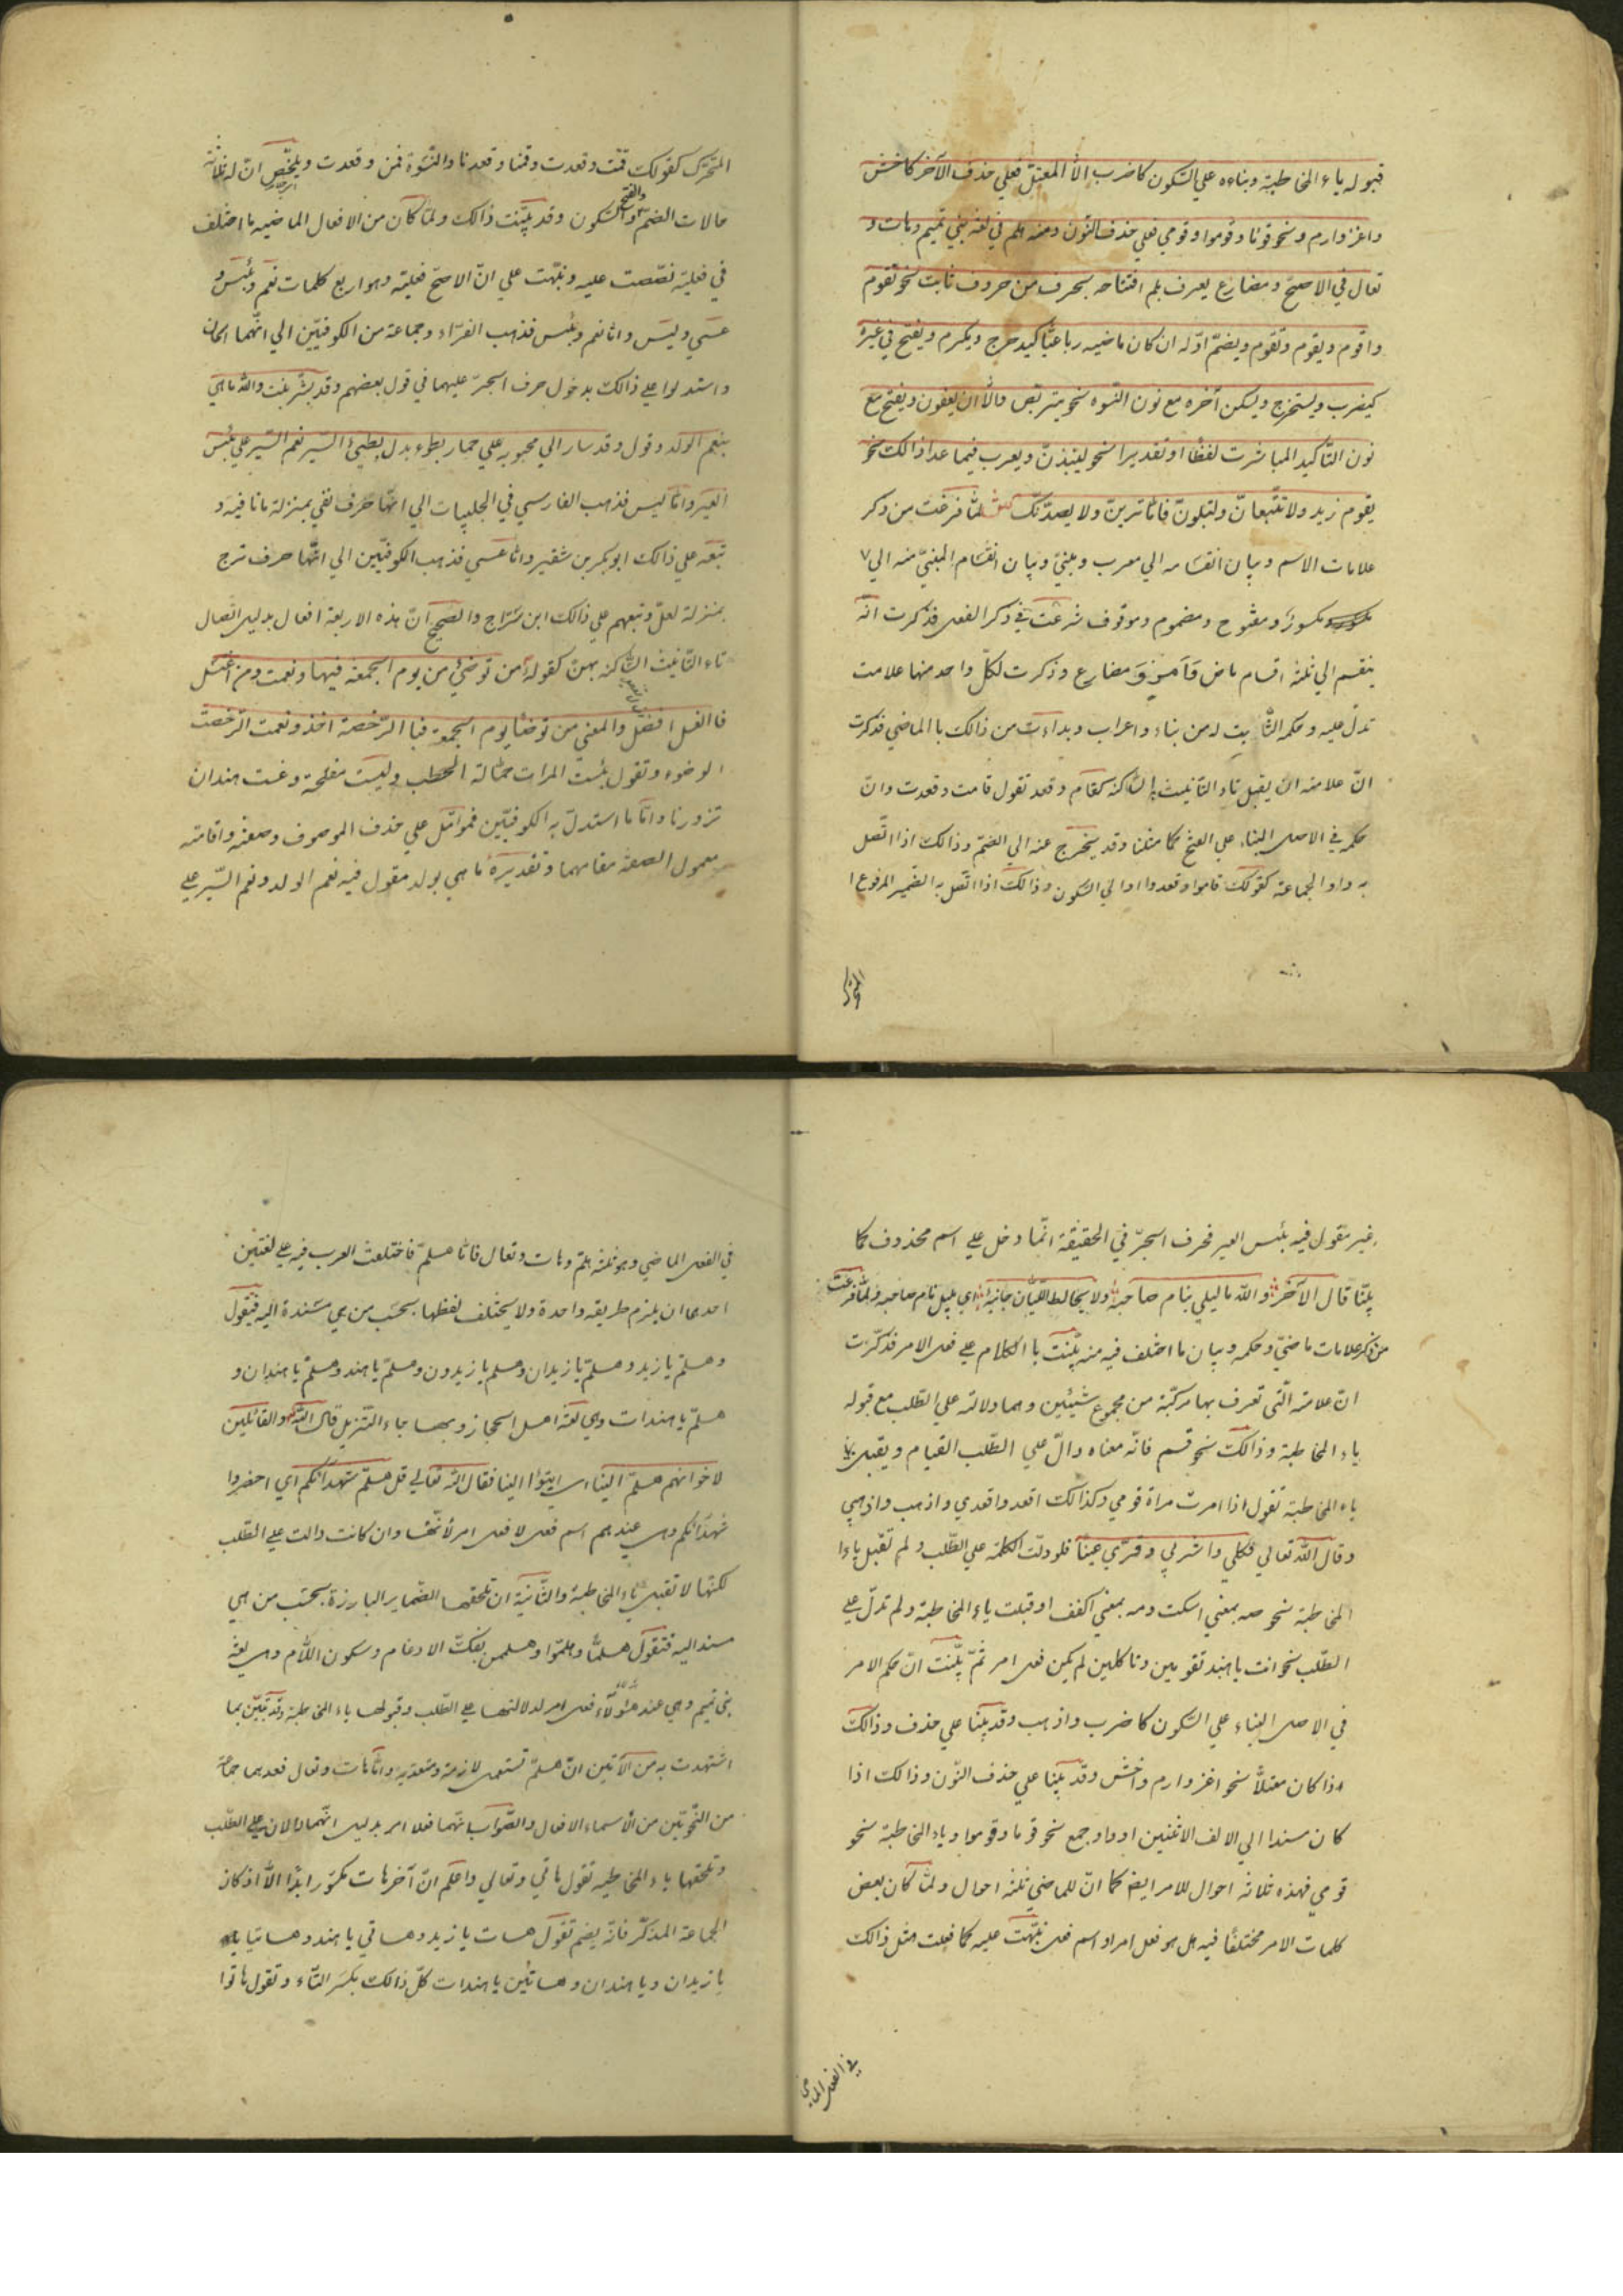 قبوله ياء المخاطبة وبناءه علي السّكون كاضرب الّا المعتلّ فعلي حذف الآخر كاخش
واغز وارم ونحو قوما وقوموا وقومي فعلي حذف النّون ومنه هلم في لغة بني تميم وهات و
تعال في الاصحّ ومضارع يعرف بلم افتتاحه بحرف من حروف نأيت نحو نقوم
واقوم ويقوم وتقوم ويضمّ اوّله ان كان ماضيه رباعيّا كيدحرج ويكرم ويفتح في غيره
كيضرب ويستخرج ويسكن آخره مع نون النسوه نحو يتربّصن والّا ان يعفون ويفتح مع
نون التّاكيد المباشرت لفظا او تقديرا نحو لينبذنّ ويعرب فيما عدا ذالك نحو
يقوم زيد ولا تتّبعانّ ولتبلونّ فامّا ترينّ ولا يصدّنّك لمّا فرغت من ذكر
علامات الاسم وبيان انقسامه الي معرب ومبنيّ وبيان انقسام المبنيّ منه الي
مكسور ومفتوح ومضموم وموقوف شرعت في ذكر الفعل فذكرت انّه
ينقسم الي ثلثة اقسام ماض وَأمر وَمضارع وذكرت لكلّ واحد منها علامت
تدلّ عليه وحكمه الثّابت له من بناء واعراب وبداءت من ذالك بالماضي فذكرت
انّ علامته ان يقبل تاء التّانيث السّاكنه كقام وقعد تقول قامت وقعدت وانّ
حكمه في الاصل البناء علي الفتح كما مثّلنا وقد يخرج عنه الي الضمّ وذالك اذا اتّصل
به واو الجماعة كقولك قاموا وقعدوا او الي السّكون وذالك اذا اتّصل به الضمير المرفوع ا
المتحرّك
المتحرّك كقولك قمت وقعدت وقمنا وقعدنا والنّسوة قمن وقعدت ويلخّص انّ له ثلاثة
حالات الضمّ والفتح والسّكون وقد بيّنت ذالك ولمّا كان من الافعال الماضيه ما اختلف
في فعليّته نصّصت عليه ونبّهت علي انّ الاصحّ فعليّته وهو اربع كلمات نعم وبئس و
عسي وليس وامّا نعم وبئس فذهب الفرّاء وجماعة من الكوفيّين الي انّهما اسمان
واستدلوا علي ذالك بدخول حرف الجرّ عليهما في قول بعضهم وقد بشّر ببنت والله ماهي
بنعم الولد وقول وقد سار الي محبوبه علي حمار بطوء بدل بطيئ السّير نعم السّير علي بئس
العير وامّا ليس فذهب الفارسي في الحلبيات الي انّها حرف نفي بمنزلة ما نافيه و
تبعه علي ذالك ابو بكر بن شقير وامّا عسي فذهب الكوفيّين الي انّها حرف ترج
بمنزلة لعلّ وتبعهم علي ذالك ابن سرّاج والصحيح انّ هذه الاربعة افعال بدليل اتّصال
تاء التّانيث السّاكنة بهنّ كقوله من توضئ من يوم الجمعة فبها ونعمت ومن اغتسل
فالغسل افضل والمعني من توضّا يوم الجمعة فبا الرّخصة اخذ ونعمت الرّخصت
الوضوء وتقول بئست المرات حمّالة الحطب وليست مفلحة وعست هند ان
تزورنا وامّا ما استدلّ به الكوفيّين فمواتّل علي حذف الموصوف وصفته واقامة
معمول الصفة مقامهما وتقديره ما هي بولد مقول فيه نعم الولد ونعم السّير علي
عير مقول فيه بئس العير فحرف الجرّ في الحقيقة انّما دخل علي اسم محذوف كما
بيّنّا قال الآخر والله ما ليلي بنام صاحبه ولا مخالط اللّيان جانبه اي بليل نام صاحبه ولمّا فرغت
من ذكر علامات ماضي وحكمه وبيان ما اختلف فيه منه بيّنت با الكلام علي فعل الامر فذكرت
انّ علامته الّتي تعرف بها مركّبة من مجموع شيئين وهما دلالته علي الطّلب مع قبوله
ياء المخاطبة وذالك نحو قم فانّه معناه دالّ علي الطّلب القيام ويقبل
ياء المخاطبة تقول اذا امرت مراة قومي وكذالك اقعد واقعدي واذهب واذهبي
وقال الله تعالي فكلي واشربي وقرّي عينا فلو دلّت الكلمة علي الطّلب ولم تقبل ياء
المخاطبة نحو صه بمعني اسكت ومه بمعني اكفف او قبلت ياء المخاطبة ولم تدلّ علي
الطّلب نحو انت يا هند تقومين وتاكلين لم يكن فعل امر ثمّ بيّنت انّ حكم الامر
في الاصل البناء علي السّكون كاضرب واذهب وقد يبنا علي حذف وذالك
اذا كان معتلّا نحو اغز وارم واخش وقد يبنا علي حذف النّون وذالك اذا
كان مسندا الي الالف الاثنين او واو جمع نحو قوما وقوموا وياء المخاطبة نحو
قومي فهذه ثلاثه احوال للامر ايضا كما انّ للماضي ثلثة احوال ولمّا كان بعض
كلمات الامر مختلفا فيه هل هو فعل امر او اسم فعل نبّهت عليه كما فعلت مثل ذالك
في الفعل الماضي
في الفعل الماضي وهو ثلثة هلمّ وهات وتعال فامّا هلمّ فاختلفت العرب فيه علي لغتين
احدىها ان يلزم طريقه واحدة ولا يختلف لفظها بحسب من هي مسندة اليه فتقول
وهلمّ يا زيد وهلمّ يا زيدان وهلم يا زيدون وهلمّ يا هند وهلمّ يا هندان و
هلمّ يا هندات وهي لغة اهل الحجاز وبها جاء التّنزيل قال الله والقائلين
لاخوانهم هلمّ الينا اي ايتوا الينا فقال الله تعالي قل هلمّ شهداءكم اي احضروا
شهداءكم وهي عندهم اسم فعل لا فعل امر لانّها وان كانت دالت علي الطّلب
لكنّها لا تقبل ياء المخاطبة والثّانية ان تلحقها الضّماير البارزة بحسب من هي
مسند اليه فتقول هلمّا وهلمّوا وهلممن بفكّ الادغام وسكون اللّام وهي لغة
بني تميم وهي عند هٰؤلاء فعل امر لدلالتها علي الطّلب وقبولها ياء المخاطبة وقد تبيّن بما
استشهدت به من الآيتين انّ هلمّ تستعمل لازمة ومتعديه وامّا هات وتعال فعدهما جماعة
من النّحويّين من الاسماء الافعال والصّواب انّهما فعلا امر بدليل انّهما دالان علي الطّلب
وتلحقها ياء المخاطبه تقول هاتي وتعالي واعلم انّ آخر هات مكسور ابدا الّا اذ كان
الجماعة المذكّر فانّه يضم تقول هات يا زيد وهاتي يا هند وهاتيا
يا زيدان ويا هندان وهاتين يا هندات كلّ ذالك بكسر التّاء وتقول هاتوا